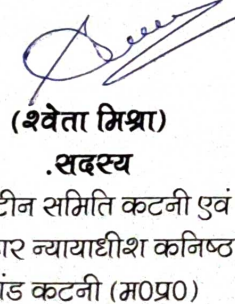 (श्वेता मिश्रा)
.सदस्य
समिति कटनी एवं
न्यायाधीश कनिष्ठ
कटनी (म0प्र0)